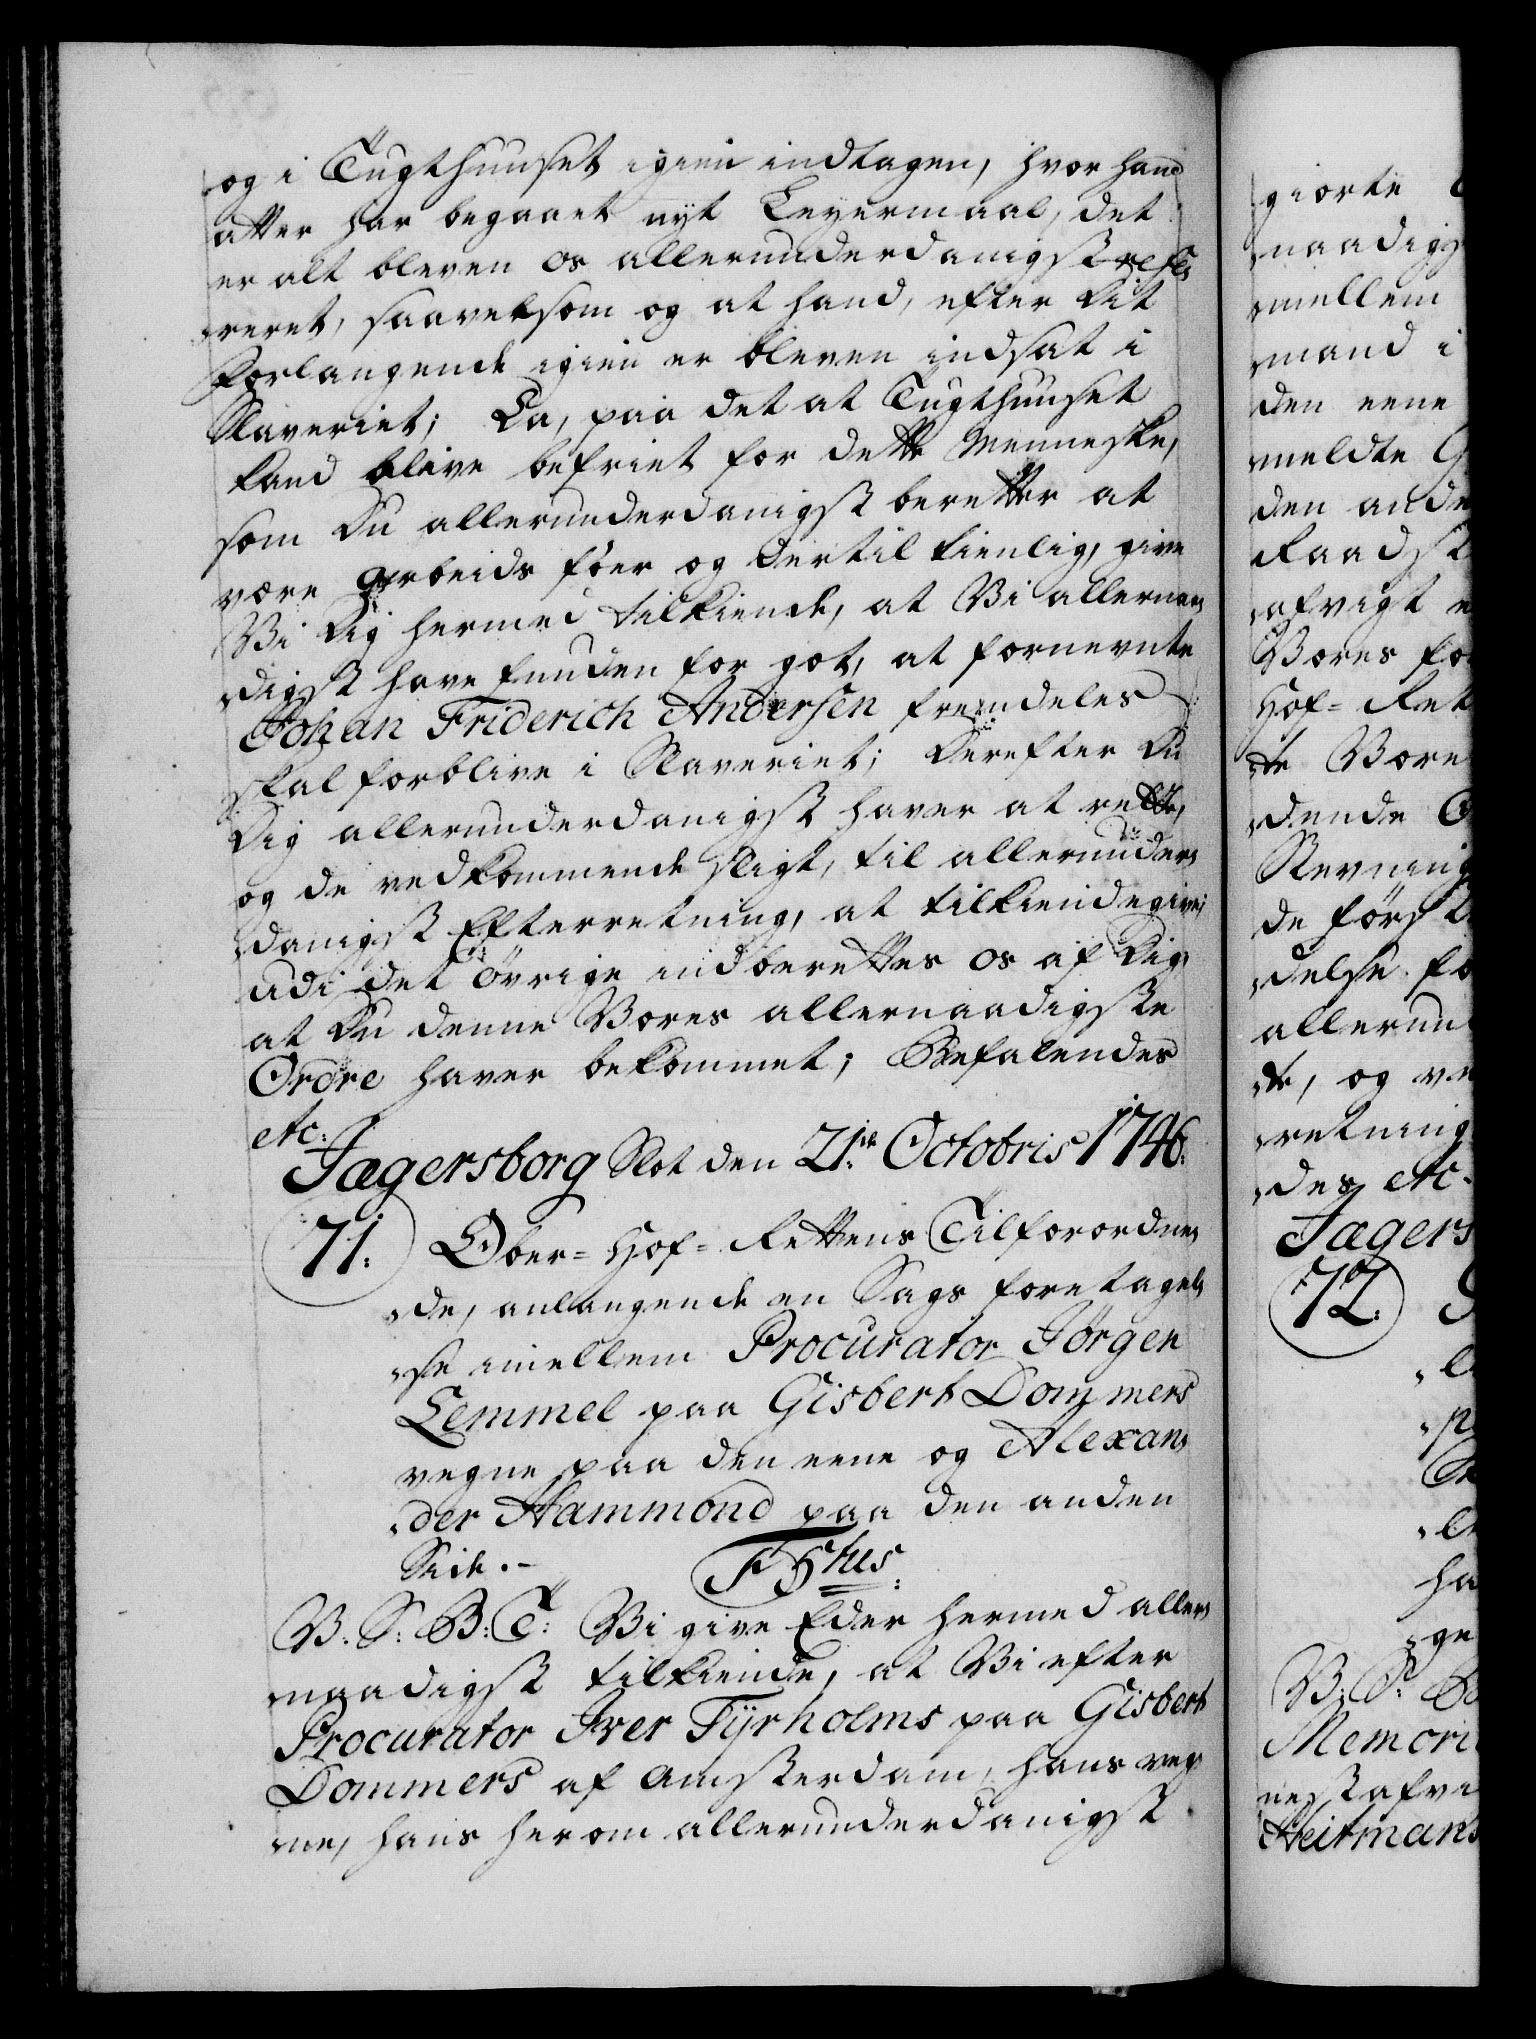 og i Tugthuuset igien indtagen, hvor hand
atter har begaaet nyt Leyermaal, det
er alt bleven os allerunderdanigst refe„
„reret, saavelsom og at hand, efter Dit
Forlangende igien er bleven indsat i
Slaveriet; Da, paa det at Tugthuuset
kand blive befriet for dette Menneske,
som Du allerunderdanigst beretter at
være Arbeids föer og dertil tienlig, give
Vi Dig hermed tilkiende, at Vi allernaa„
„digst have funden for got, at fornevnte
Johan Friderich Andersen fremdeles
skal forblive i Slaveriet; Derefter Du
Dig allerunderdanigst haver at rette,
og de vedkommende sligt, til allerunder„
„danigst Efterretning, at tilkiendegive;
udi det övrige indberettes os af Dig,
at Du denne Vores allernaadigste
Ordre haver bekommet; Befalendes
etc:
Jægersborg Slot den 21.de Octobris 1746.
71. Ober-Hof-Rettens Tilforordne„
„de, anlangende en Sags foretagel„
„se imellem Procurator Jörgen
Lemmel paa Gisbert Dommers
vegne paa den eene og Alexan„
„der Hammond paa den anden
Side.-
F5tus.
V. S: B: T: Vi give Eder hermed aller„
„naadigst tilkiende, at Vi efter
Procurator Iver Tyrholms paa Gisbert
Dommers af Amsterdam, hans veg„
„ne, hans herom allerunderdanigst
giorte
naadigs
mellem
mand i
den eene
meldte G
den ande
Raadst
afvigt
Vores for
Hof-Ret
te Vore
dende
Stevning
de först
„delse fo
allerun
de, og
„retning
„des etc.
Jægers
72.
ha
„ge
V. S: B
Memori
nest afvi
Heitmans